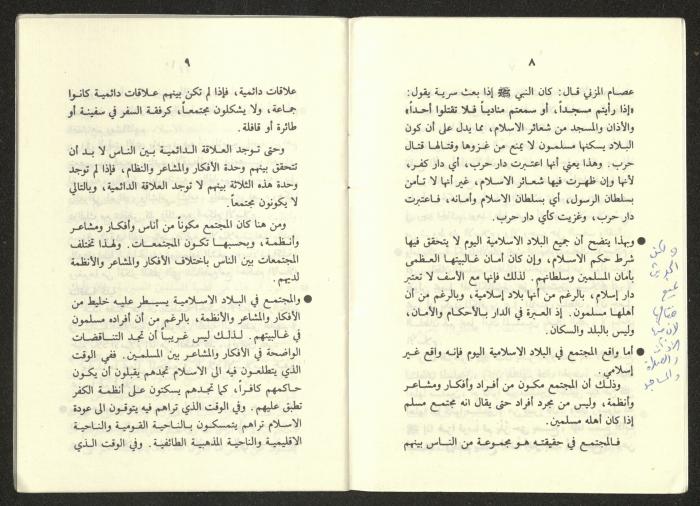 ٨
عصام المزني قال: كان النبي ﷺ إذا بعث سرية يقول:
«إذا رأيتم مسجداً، أو سمعتم منادياً فلا تقتلوا أحداً»
والأذان والمسجد من شعائر الاسلام، مما يدل على أن كون
البلاد يسكنها مسلمون لا يمنع من غزوها وقتالها قتال
حرب. وهذا يعني أنها اعتبرت دار حرب، أي دار كفر،
لأنها وإن ظهرت فيها شعائر الاسلام، غير أنها لا تأمن
بسلطان الرسول، أي بسلطان الاسلام وأمانه، فاعتبرت
دار حرب، وغزيت كأي دار حرب.
● وبهذا يتضح أن جميع البلاد الاسلامية اليوم لا يتحقق فيها
شرط حكم الاسلام، وإن كان أمان غالبيتها العظمى
بأمان المسلمين وسلطانهم. لذلك فإنها مع الأسف لا تعتبر
دار إسلام، بالرغم من أنها بلاد إسلامية، وبالرغم من أن
أهلها مسلمون. إذ العبرة في الدار بالأحكام والأمان،
وليس بالبلد والسكان.
● أما واقع المجتمع في البلاد الاسلامية اليوم فإنه واقع غير
إسلامي.
وذلك أن المجتمع مكون من أفراد وأفكار ومشاعر
وأنظمة، وليس من مجرد أفراد حتى يقال انه مجتمع مسلم
إذا كان أهله مسلمين.
فالمجتمع في حقيقته هو مجموعة من الناس بينهم
٩
علاقات دائمية، فإذا لم تكن بينهم علاقات دائمية كانوا
جماعة، ولا يشكلون مجتمعاً، كرفقة السفر في سفينة أو
طائرة أو قافلة.
وحتى توجد العلاقة الدائمية بين الناس لا بد أن
تتحقق بينهم وحدة الأفكار والمشاعر والنظام، فإذا لم توجد
وحدة هذه الثلاثة بينهم لا توجد العلاقة الدائمية، وبالتالي
لا يكونون مجتمعاً.
ومن هنا كان المجتمع مكوناً من أناس وأفكار ومشاعر
وأنظمة، وبحسبها تكون المجتمعات. ولهذا تختلف
المجتمعات بين الناس باختلاف الأفكار والمشاعر والأنظمة
لديهم.
● والمجتمع في البلاد الاسلامية يسيطر عليه خليط من
الأفكار والمشاعر والأنظمة، بالرغم من أن أفراده مسلمون
في غالبيتهم. لذلك ليس غريباً أن تجد التناقضات
الواضحة في الأفكار والمشاعر بين المسلمين. ففي الوقت
الذي يتطلعون فيه الى الاسلام تجدهم يقبلون أن يكون
حاكمهم كافراً، كما تجدهم يسكتون على أنظمة الكفر
تطبق عليهم. وفي الوقت الذي تراهم فيه يتوقون الى عودة
الاسلام تراهم يتمسكون بالناحية القومية والناحية
الاقليمية والناحية المذهبية الطائفية. وفي الوقت الذي